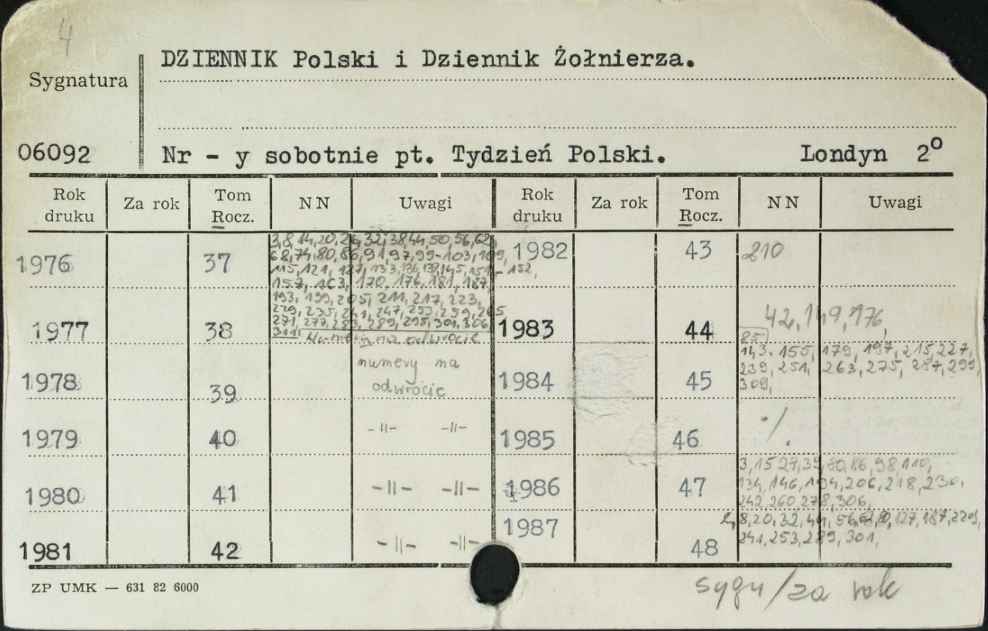 4
DZIENNIK Polski i Dziennik Żołnierza.
Sygnatura
06092
Nr - y sobotnie pt. Tydzień Polski. Londyn 2º
Rok druku Za rok Tom Rocz. NN Uwagi Rok druku Za rok Tom Rocz. NN Uwagi
3,8,14,20,26,32,38,44,50,56,62,
68,74,80,86,91,97,99-103,109,
1976 37
115,121,127,133,136,139,145,151-152,
157,163,170,176,181,187,
193,199,205,211,217,223,
229,235,241,247,253,259,265
271,277,283,289,295,301,306
311 Numery na odwrocie
1977 38
1978 39 numery na
odwrocie
1979 40 -||- -||-
1980 41 -||- -||-
1981 42 -||- -||-
1982 43 210
1983 44 42,149,176,
85
143,155,179,197,215,227,
239,251,263,275,287,299,
309,
1984 45
1985 46 ·/.
3,15,27,39,80,86,98,110,
134,146,194,206,218,230,
242,260,278,306,
1986 47
2,8,20,32,44,56,68,127,187,229,
241,253,289,301,
1987 48
ZP UMK — 631 82 6000
sygn/za rok